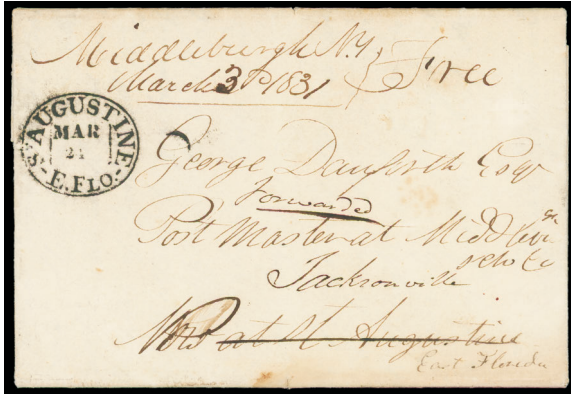 Middleburgh N.Y. } Free
March 3d 1831
ST. AUGUSTINE
MAR
24
E. FLO.
George Danforth Esqr
Forwarded
Post Master at Middleburgh
Scho Co
Jacksonville
Now at St Augustine
East Florida